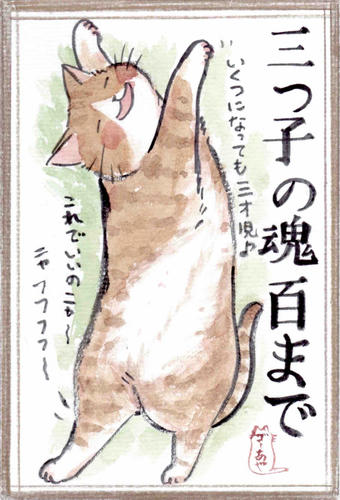 三つ子の魂百まで
いくつになっても三才児♪
これでいいのニャ〜
ニャフフフフ〜